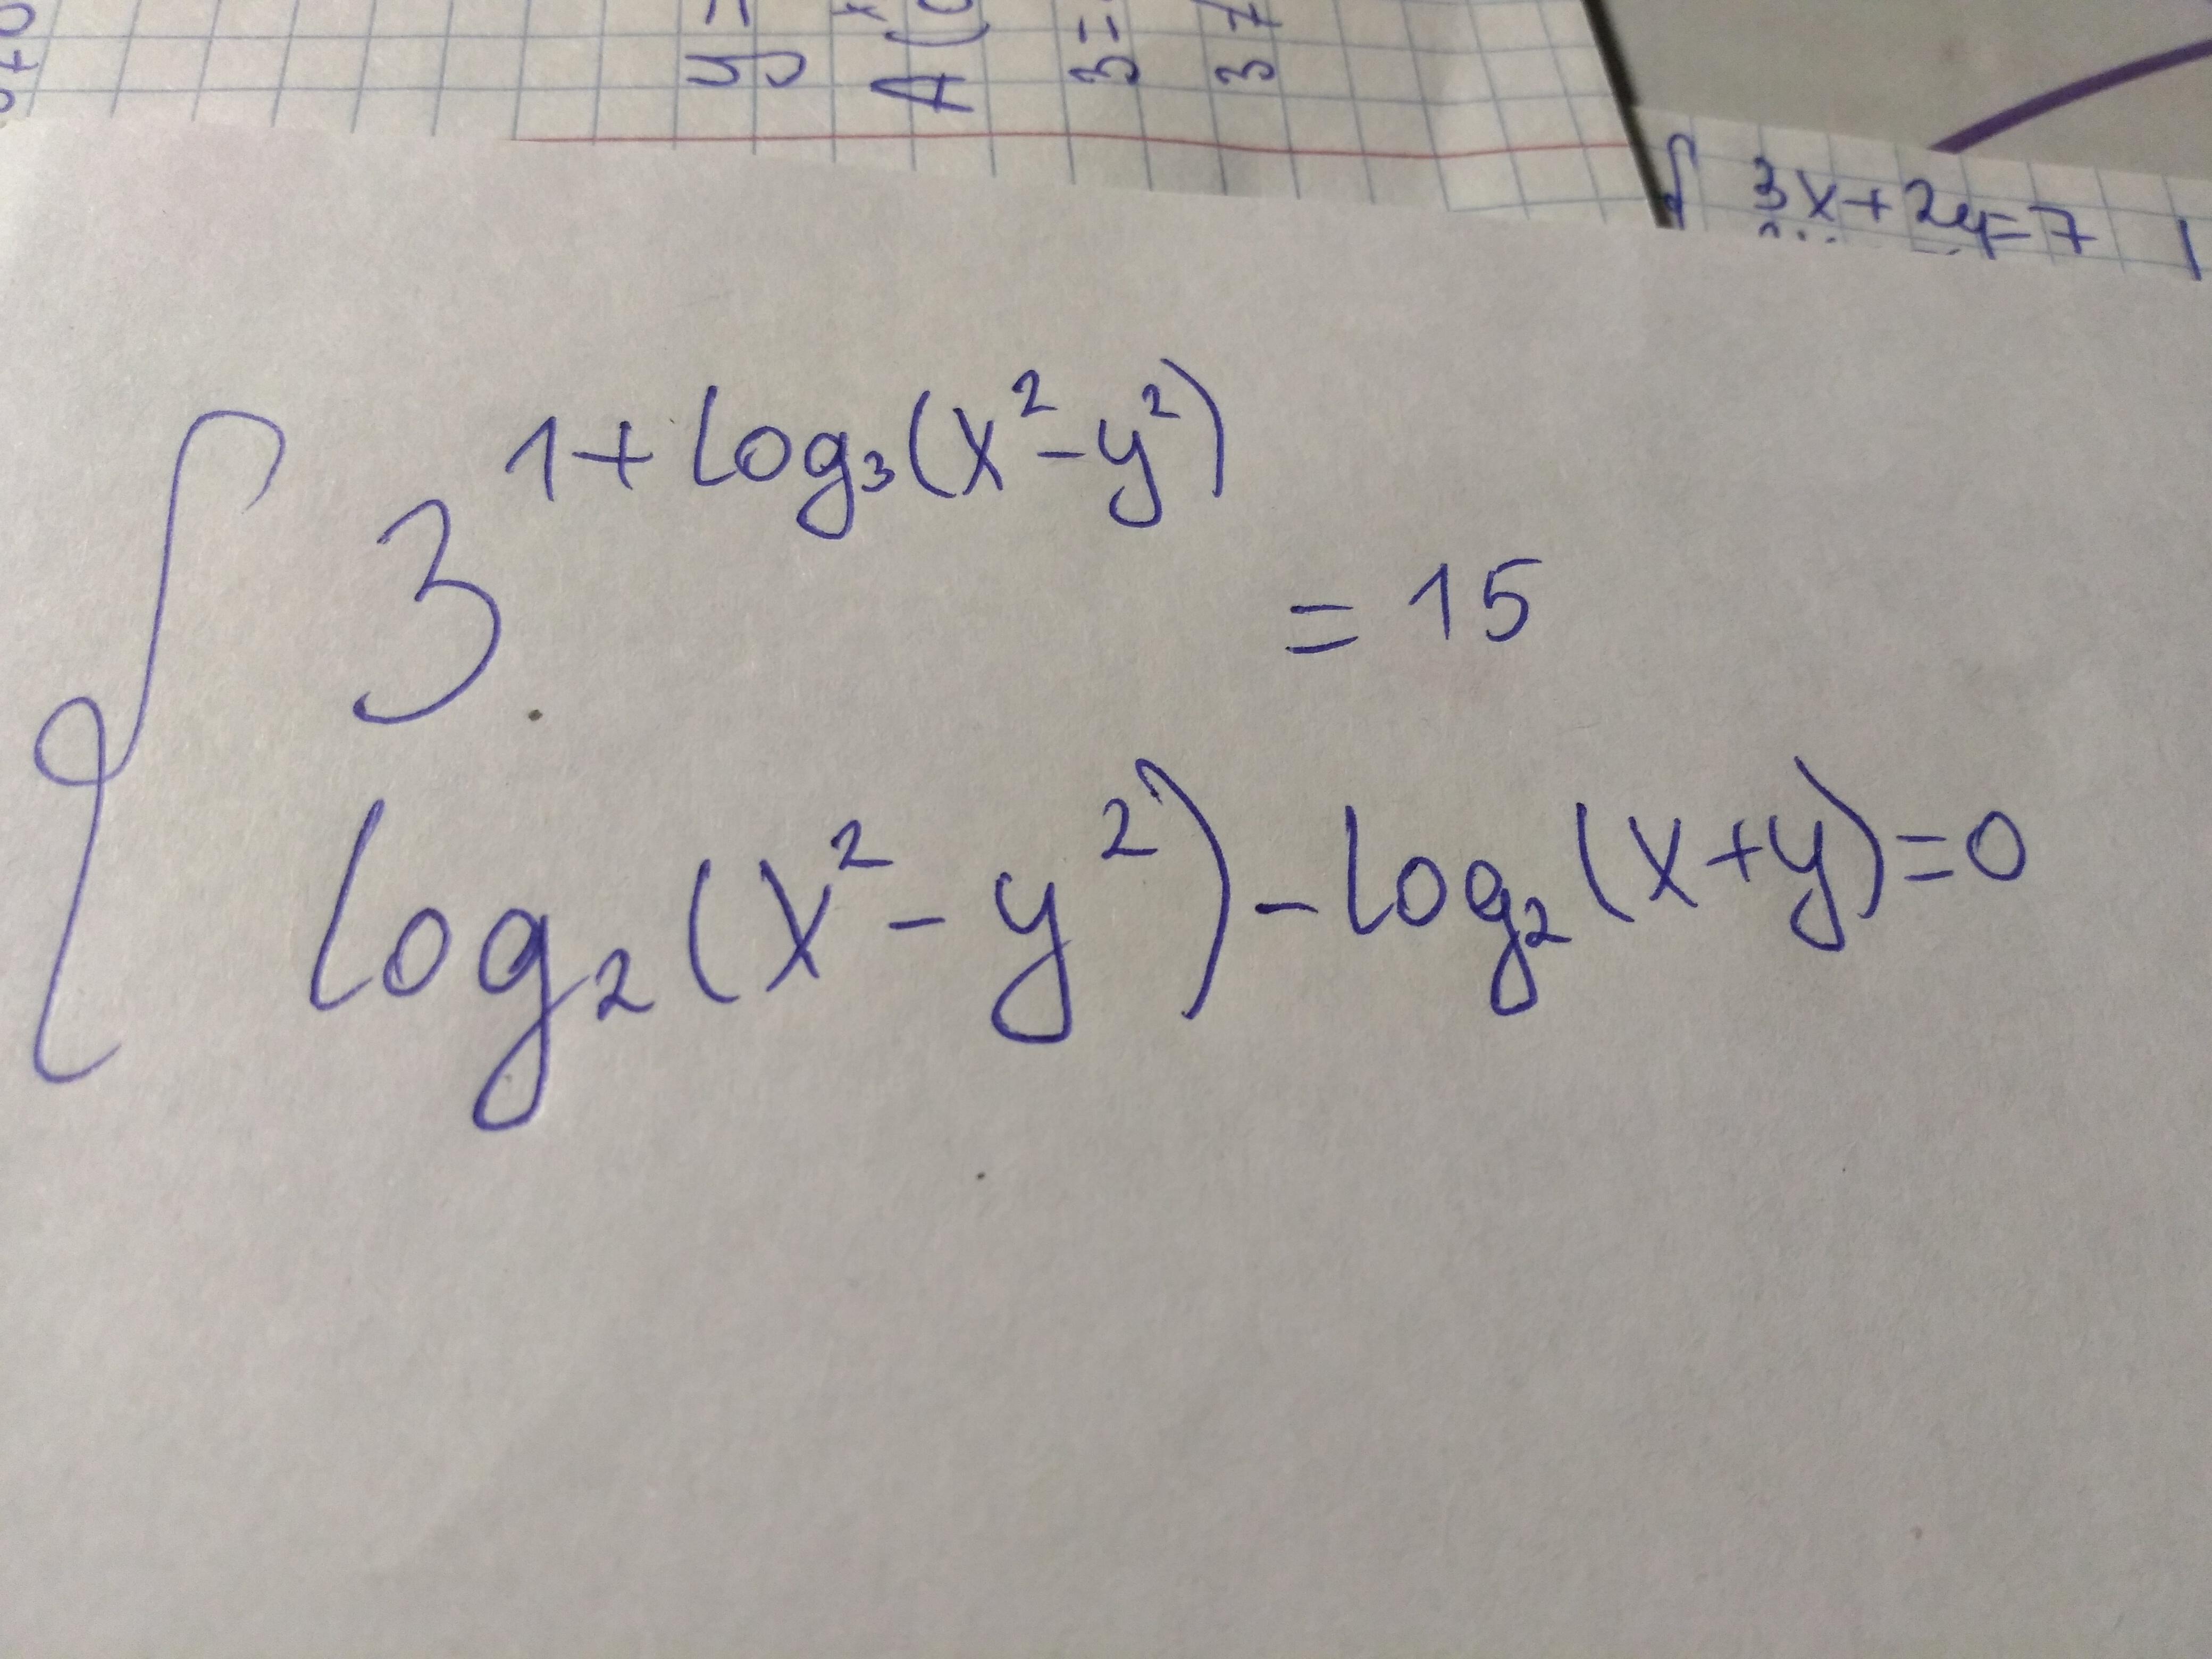 y =
A (
3 =
3 7
3x+2y=7
3^{1+log₃(x²-y²)} = 15
log₂(x²-y²)-log₂(x+y)=0